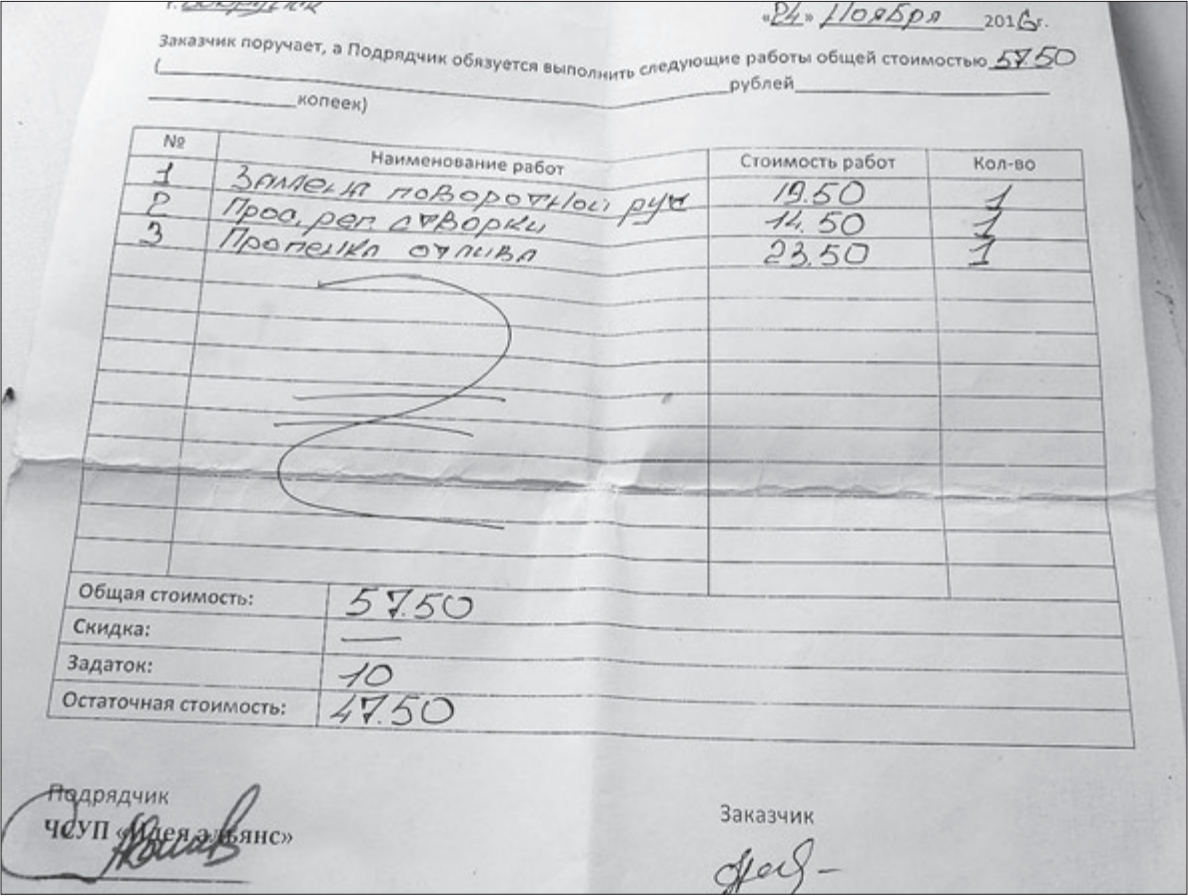 г. Бобруйск «24» Ноября 2016г.
Заказчик поручает, а Подрядчик обязуется выполнить следующие работы общей стоимостью 57.50
(____________рублей____________
____________копеек)
№ Наименование работ Стоимость работ Кол-во
1 Замена поворотной руч 19.50 1
2 Проф. рег. створки 14.50 1
3 Пропенка отлива 23.50 1
Общая стоимость: 57.50
Скидка: —
Задаток: 10
Остаточная стоимость: 47.50
Подрядчик Заказчик
ЧСУП «Идея альянс»